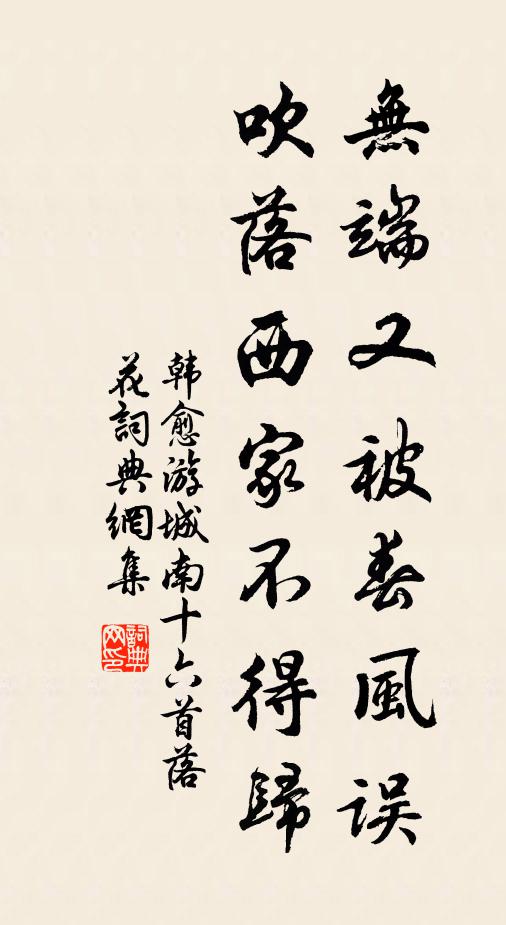 無端又被春風误
吹落西家不得歸
韩愈游城南十六首落
花詞典網集
詞典
网印